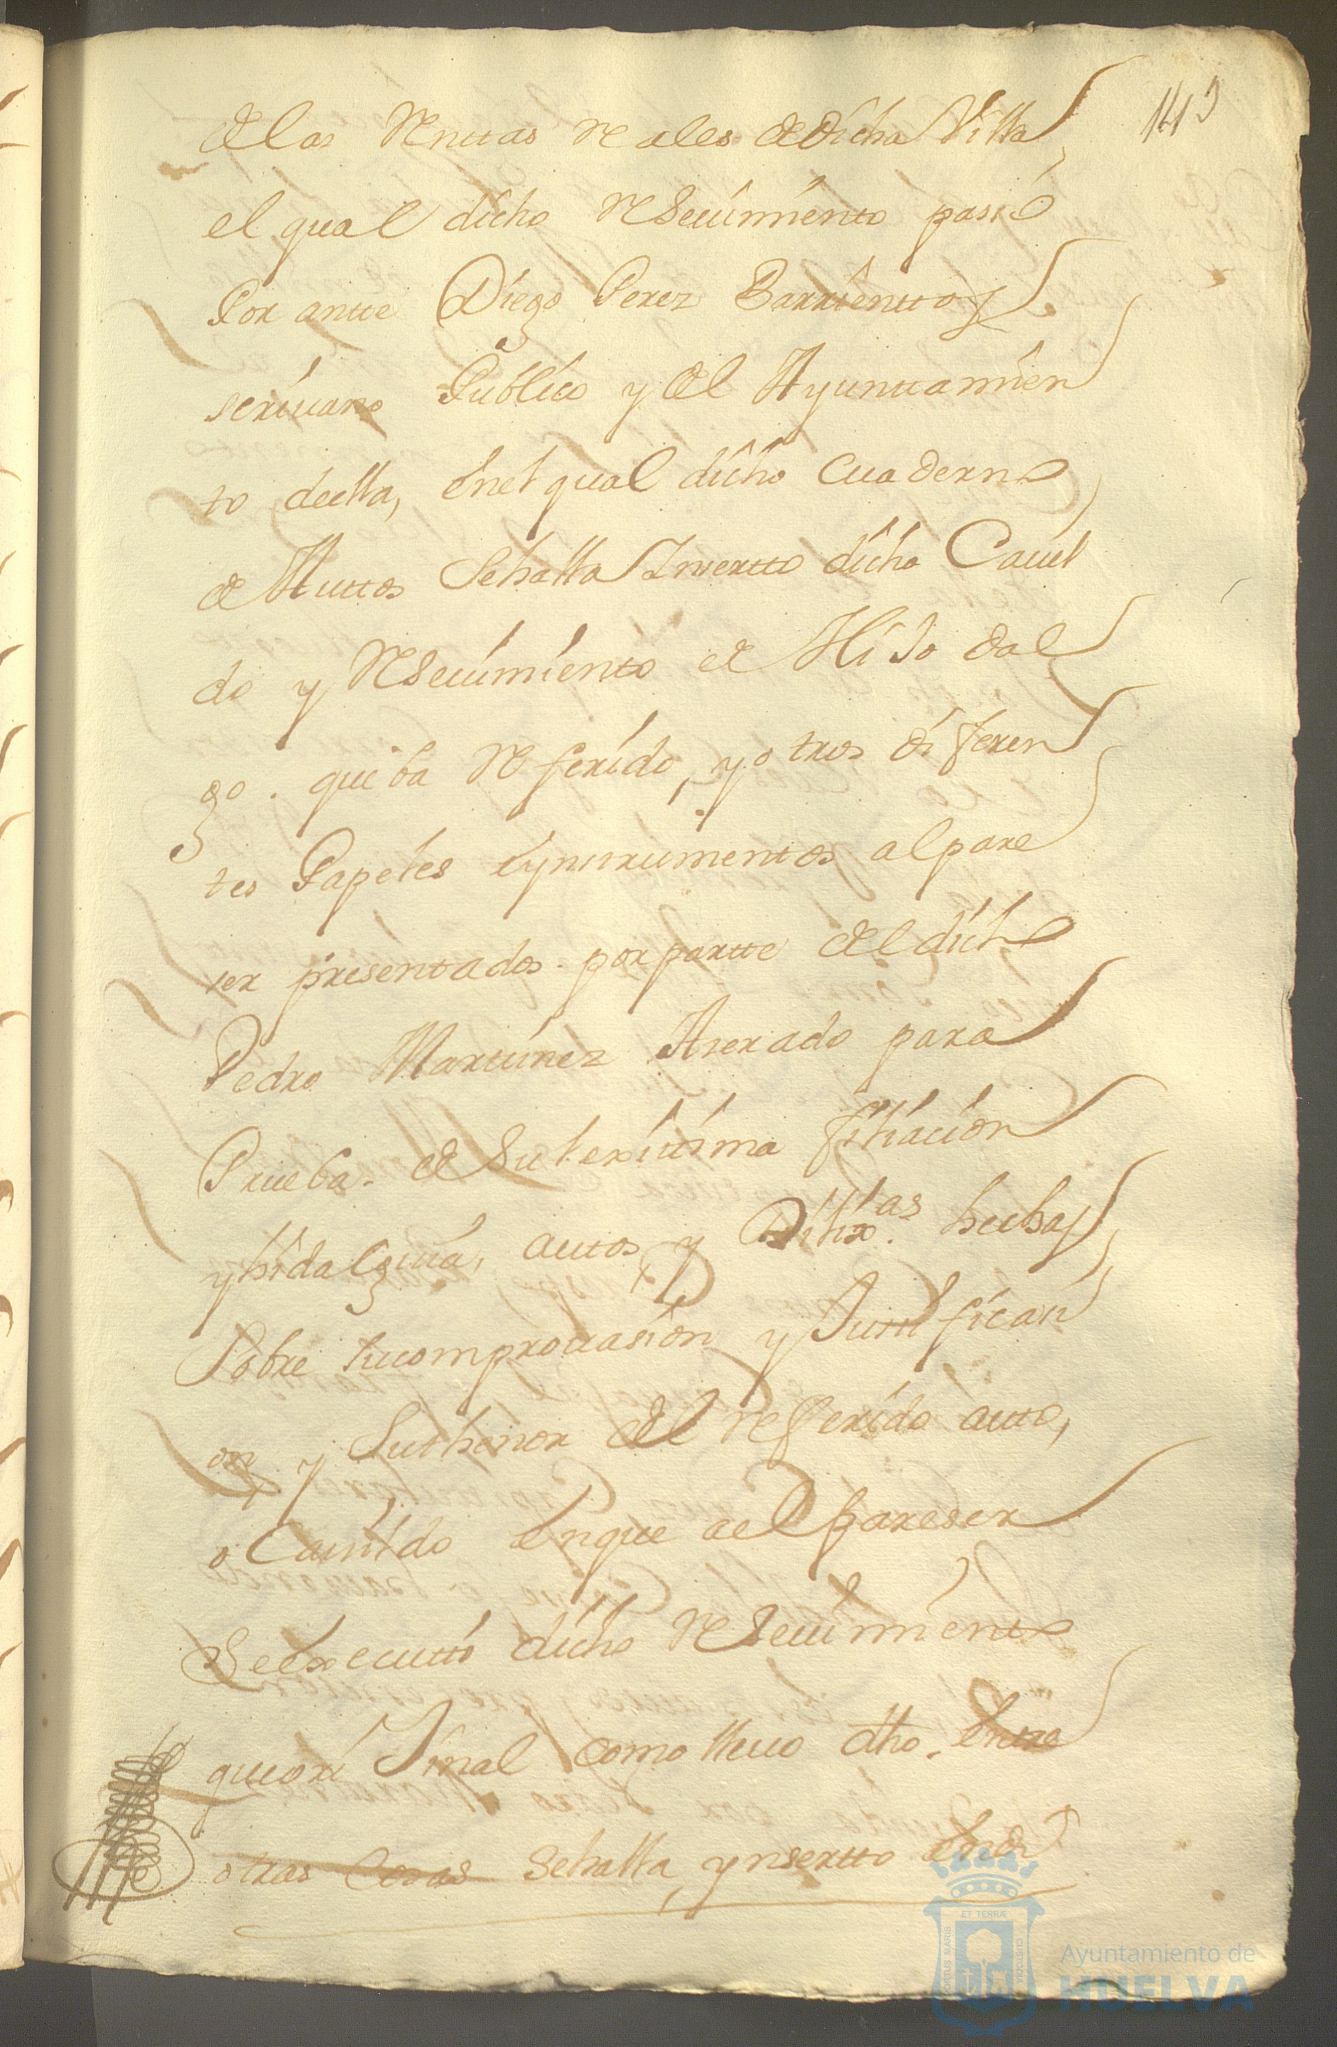 143
de las Renttas Reales de dicha Villa
el qual dicho Resevimiento passo
Por antte Diego Perez Barrientos
scrivano Publico y del Ayunttamien
to deella, enel qual dicho cuaderno
de Auttos Sehalla Ynsertto dicho Cavil
do y Resevimiento de Hijo dal
go. queba Referido, y otros diferen
tes Papeles eynstrumentos alpare
ser presentados. por partte del dicho
Pedro Martinez Aserado para
Prueba. de su lexitisima filiacion
yhidalguia, autos y Dilix.as hechas
Sobre sucomprovasion y Justificasi
on y Suthenor del Referido autto,
o Cavildo enque ael pareser
Seexecutto dicho Resevimiento
queorijinal como llevo dho. entre
otras cosas sehalla, ynsertto endi
ET TERRÆ
PORTUS MARIS
CUSTODIO
Ayuntamiento de
HUELVA